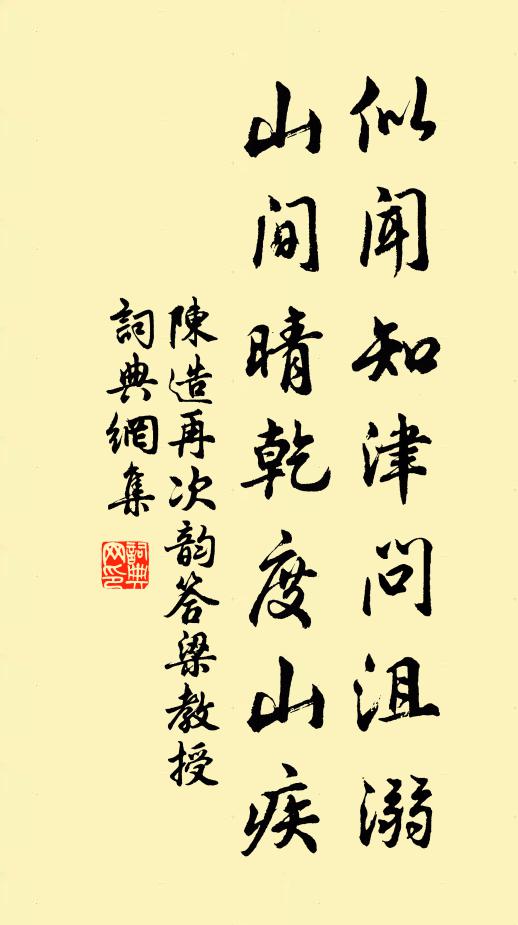 似聞知津問沮溺
山間晴乾度山疾
陳造再次韵答梁教授
詞典網集
詞典網印